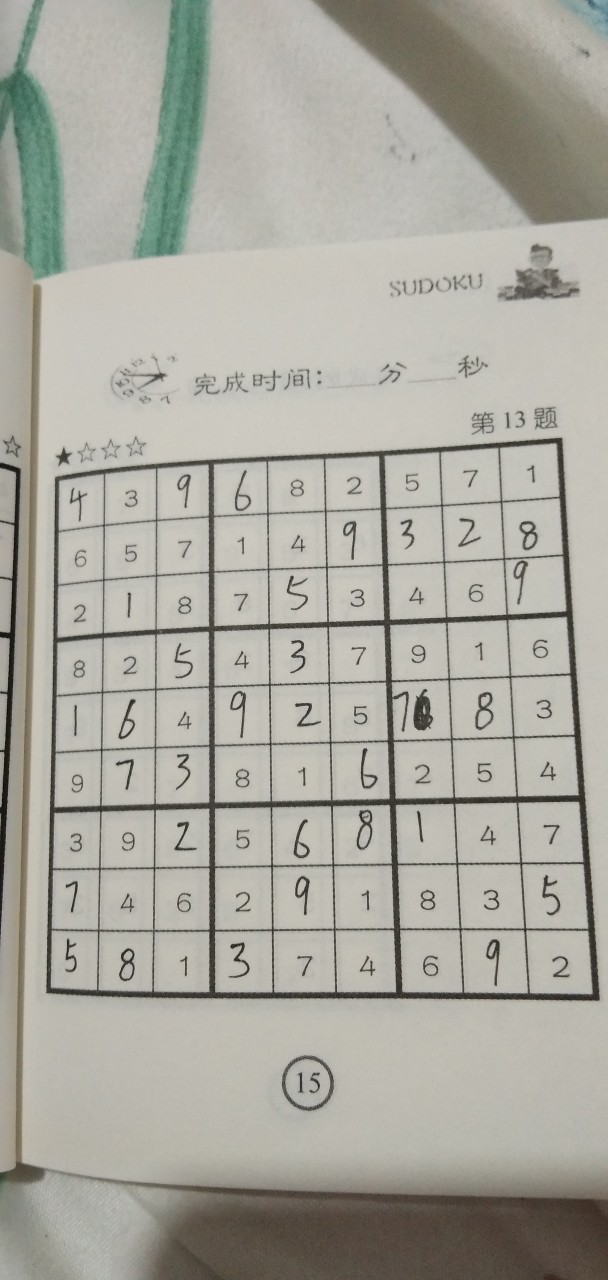 SUDOKU
完成时间:___分___秒
第13题
★☆☆☆
4 3 9 6 8 2 5 7 1
6 5 7 1 4 9 3 2 8
2 1 8 7 5 3 4 6 9
8 2 5 4 3 7 9 1 6
1 6 4 9 2 5 7 8 3
9 7 3 8 1 6 2 5 4
3 9 2 5 6 8 1 4 7
7 4 6 2 9 1 8 3 5
5 8 1 3 7 4 6 9 2
15